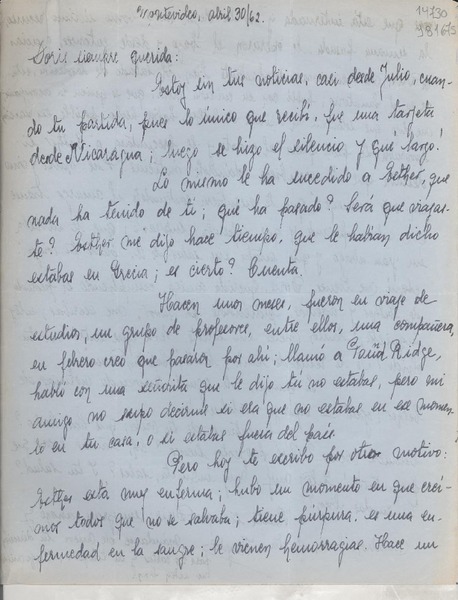 14730
981675
Montevideo, abril, 30/62.
Doris siempre querida:
Estoy sin tus noticias, casi desde Julio, cuan-
do tu partida, pues lo único que recibí, fue una tarjeta
desde Nicaragua; luego se hizo el silencio y ¡qué largo!
Lo mismo le ha sucedido a Esther, que
nada ha tenido de ti; ¿qué ha pasado? ¿Será que viajas-
te? Esther me dijo hace tiempo, que le habían dicho
estabas en Grecia; ¿es cierto? Cuenta.
Hacen unos meses, fueron en viaje de
estudios, un grupo de profesores, entre ellos, una compañera,
en febrero creo que pasaron por ahí; llamó a Pound Ridge,
habló con una señorita que le dijo tú no estabas, pero mi
amiga no supo decirme si era que no estabas en ese momen-
to en tu casa, o si estabas fuera del país.
Pero hoy te escribo por otro motivo:
Esther está muy enferma; hubo un momento en que creí-
mos todos que no se salvaba; tiene púrpura. es una en-
fermedad en la sangre; le vienen hemorragias. Hace un